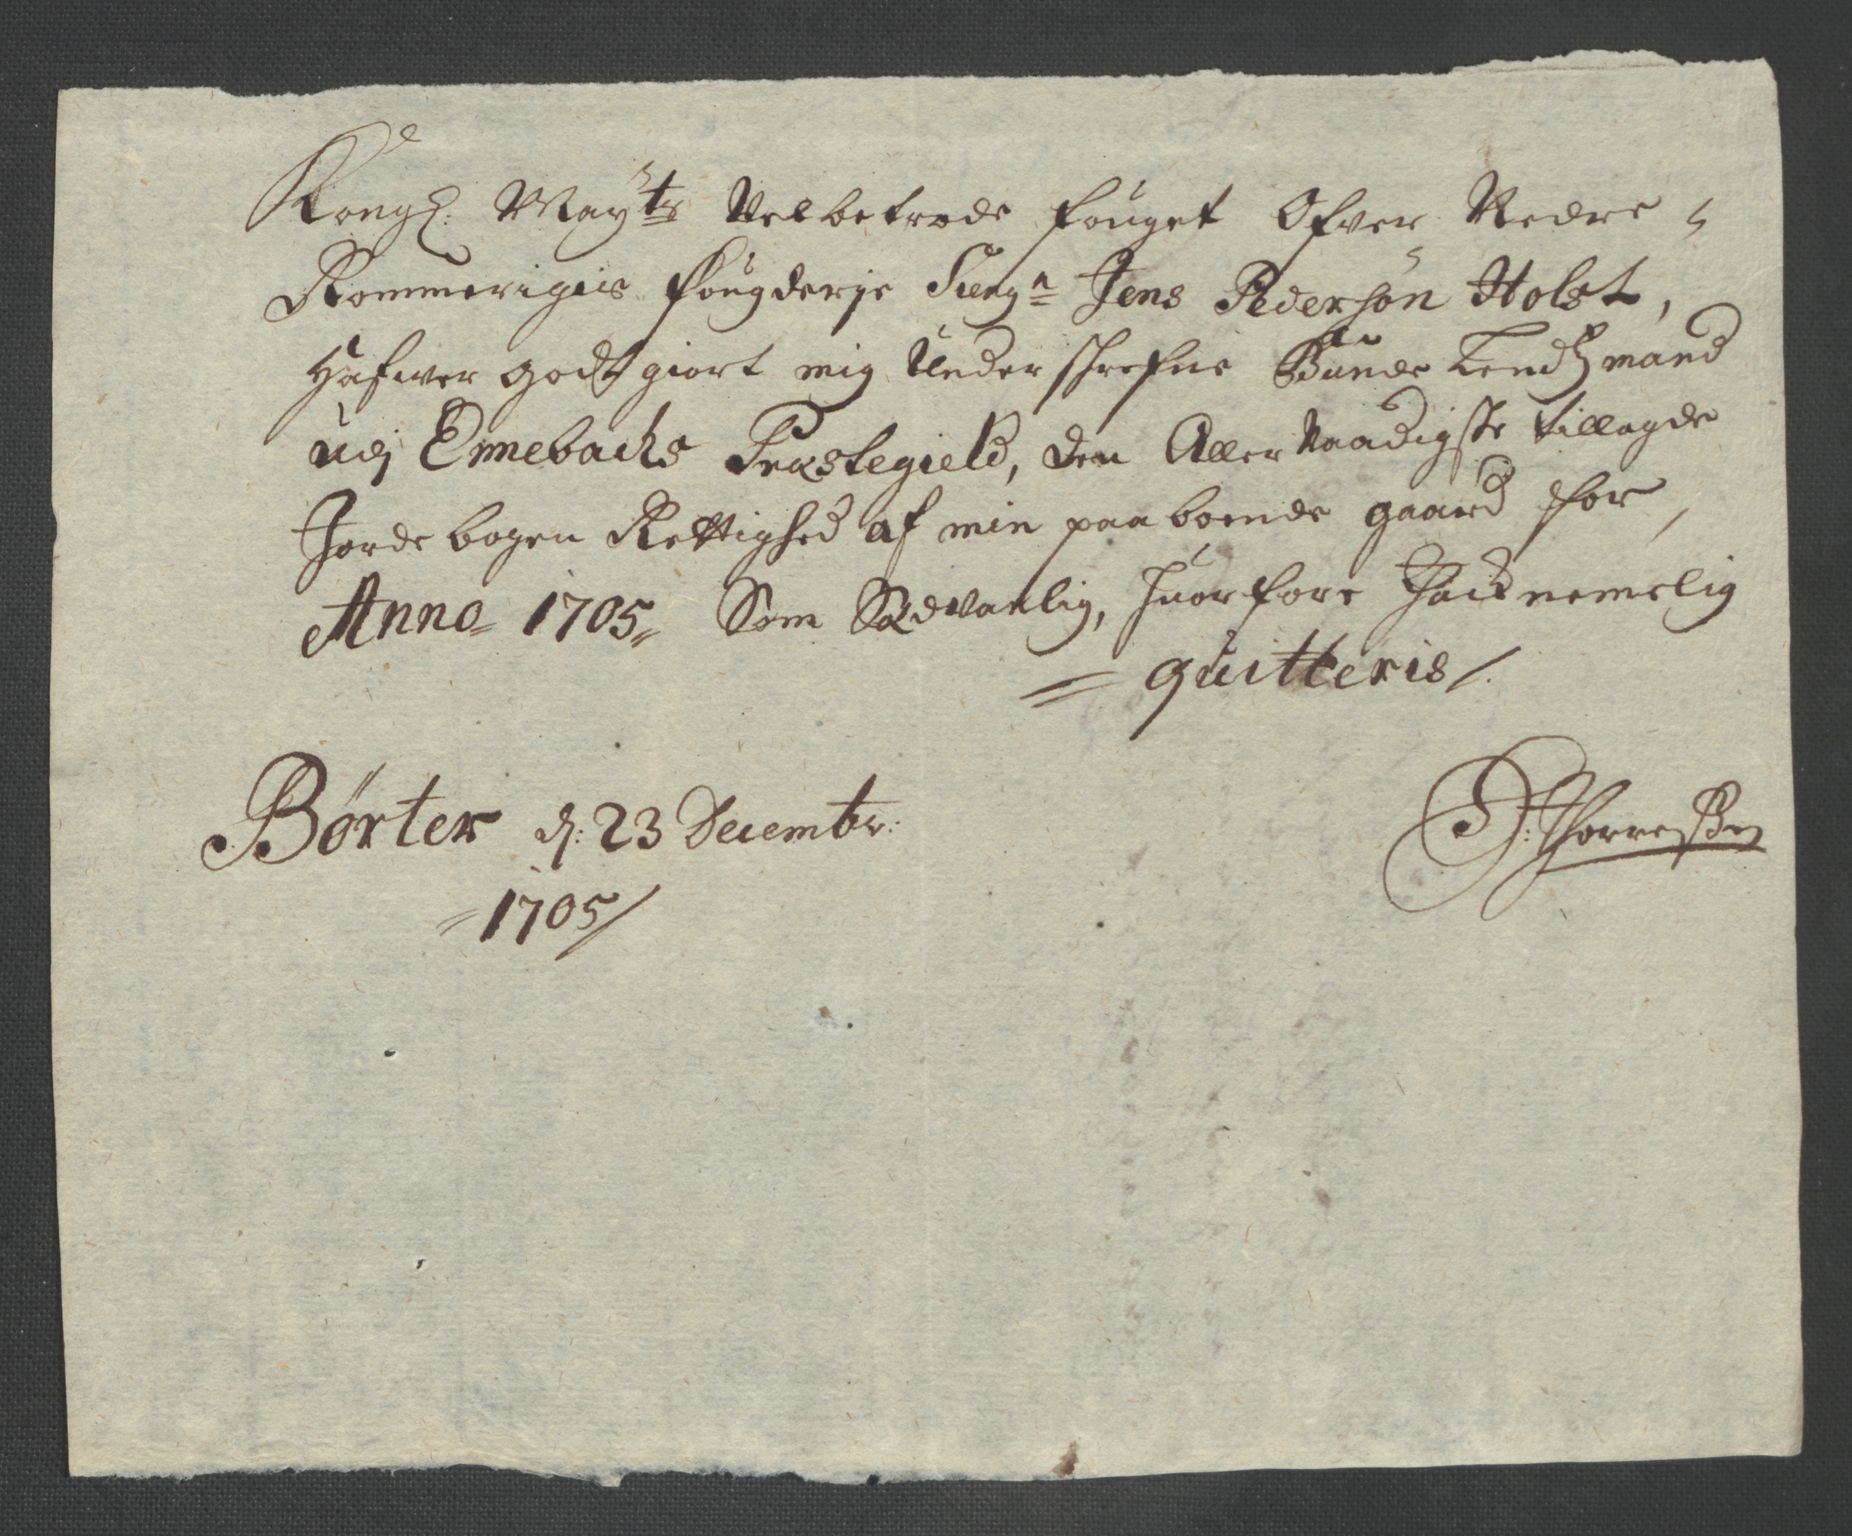 Kongl: Mayts Velbetrode fouget Ofver Nedre
Rommerigiis fougderje Sieugn Jens Pedersøn Holst,
Hafwer godtgiort mig Underschrefne Bunde Lendsmand
udj Ennebachs Præstegield, den Aller Naadigste tillagde
Jordebogen Rettighed af min paaboende gaard for,
Anno 1705 Som Sædvanlig, huorfore Tacknemelig
quitteris
Børter d: 23 Decembr:
1705